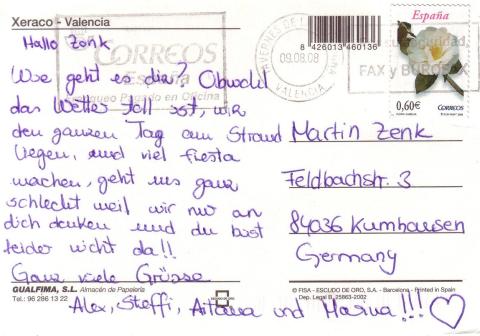 Xeraco - Valencia
Hallo Zenk
Wie geht es dir? Obwohl
das Wetter toll ist, wir
den ganzen Tag am Strand
liegen, und viel fiesta
machen, geht uns ganz
schlecht weil wir nur an
dich denken und du bist
leider nicht da!!
Ganz viele Grüsse
Alex, Steffi, Aitana und Marina!!!
GUALFIMA, S.L. Almacén de Papelería
Tel.: 96 286 13 22
CORREOS
España
Franqueo Pagado en Oficina
09.08.08
VALENCIA
8 426013 460136
España
0,60€
CORREOS
FAX y BUROFAX
Martin Zenk
Feldbachstr. 3
84036 Kumhausen
Germany
© FISA - ESCUDO DE ORO, S.A. - Barcelona - Printed in Spain
Dep. Legal B. 25863-2002